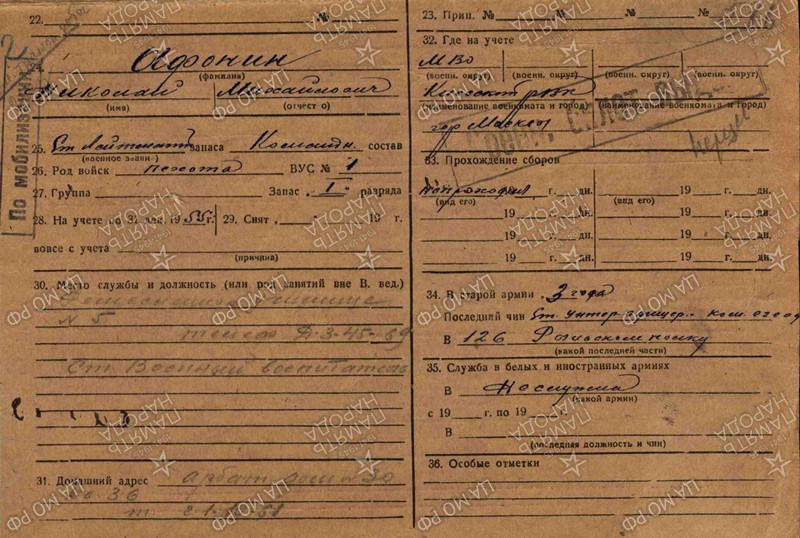 22. №
24. Афонин
(фамилия)
Николай Михайлович
(имя) (отчество)
25. Ст. Лейтенант запаса Командн. состав
(военное звание)
26. Род войск пехота ВУС № 1
27. Группа Запас I разряда
28. На учете до 31 дек. 1955 г. 29. Снят 19 г.
вовсе с учета
(причина)
30. Место службы и должность (или род занятий вне В. вед.)
N 5
Ст. Военный воспитатель
31. Домашний адрес Арбат дом № 30
кв. 36
По мобилизации
23. Прип. № № № №
32. Где на учете
МВО
(воен. округ) (воен. округ) (воен. округ) (воен. округ)
Киевский рвк
(наименование военкомата и город) (наименование военкомата и город)
гор Москвы
33. Прохождение сборов
не проходил г. дн. 19 г. дн.
(вид его) (вид его)
19 г. дн. 19 г. дн.
19 г. дн. 19 г. дн.
19 г. дн. 19 г. дн.
34. В старой армии 3 года
Последний чин Ст. унтер-офицер
В 126 Рыльском полку
(какой последней части)
35. Служба в белых и иностранных армиях
В Не служил
(какой армии)
с 19 г. по 19 г.
В
(последняя должность и чин)
36. Особые отметки
ЦА МО РФ
ПАМЯТЬ НАРОДА